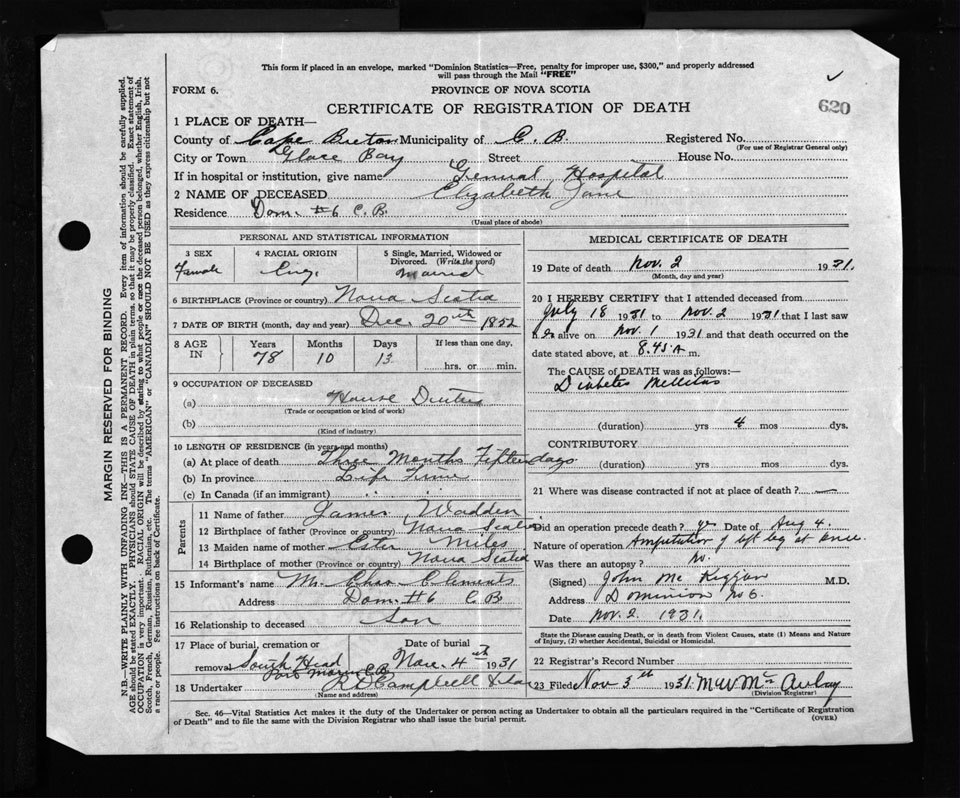 This form if placed in an envelope, marked "Dominion Statistics—Free, penalty for improper use, $300," and properly addressed
will pass through the Mail "FREE"
FORM 6. PROVINCE OF NOVA SCOTIA
CERTIFICATE OF REGISTRATION OF DEATH 620
1 PLACE OF DEATH—
County of Cape Breton Municipality of C. B. Registered No.
(For use of Registrar General only)
City or Town Glace Bay Street House No.
If in hospital or institution, give name General Hospital
2 NAME OF DECEASED Elizabeth Jane
Residence Dom. #6 C. B.
(Usual place of abode)
PERSONAL AND STATISTICAL INFORMATION
3 SEX 4 RACIAL ORIGIN 5 Single, Married, Widowed or
Divorced. (Write the word)
Female Eng. Married
6 BIRTHPLACE (Province or country) Nova Scotia
7 DATE OF BIRTH (month, day and year) Dec. 20th 1852
8 AGE IN Years Months Days If less than one day,
78 10 13 hrs. or min.
9 OCCUPATION OF DECEASED
(a) House Duties
(Trade or occupation or kind of work)
(b)
(Kind of industry)
10 LENGTH OF RESIDENCE (in years and months)
(a) At place of death Three Months Fifteen days
(b) In province Life Time
(c) In Canada (if an immigrant)
Parents
11 Name of father James Wadden
12 Birthplace of father (Province or country) Nova Scotia
13 Maiden name of mother Miles
14 Birthplace of mother (Province or country) Nova Scotia
15 Informant's name Mr. Chas Clements
Address Dom. #6 C B
16 Relationship to deceased Son
17 Place of burial, cremation or Date of burial
removal South Head Nov. 4th 1931
Port Morien C.B.
18 Undertaker R D Campbell
(Name and address)
MEDICAL CERTIFICATE OF DEATH
19 Date of death Nov. 2 1931.
(Month, day and year)
20 I HEREBY CERTIFY that I attended deceased from
July 18 1931 to Nov. 2 1931 that I last saw
h er alive on Nov. 1 1931 and that death occurred on
date stated above, at 8.45 A m.
The CAUSE of DEATH was as follows:—
Diabetes Mellitus
(duration) yrs 4 mos dys.
CONTRIBUTORY
(duration) yrs mos dys.
21 Where was disease contracted if not at place of death? —
Did an operation precede death? yes Date of Aug 4.
Nature of operation Amputation of left leg at knee.
Was there an autopsy? No.
(Signed) John Mc Kiggan M.D.
Address Dominion No 6.
Date Nov. 2. 1931.
State the Disease causing Death, or in death from Violent Causes, state (1) Means and Nature
of Injury, (2) whether Accidental, Suicidal or Homicidal.
22 Registrar's Record Number
23 Filed Nov 3rd 1931. Mc Aulay
(Division Registrar)
Sec. 46—Vital Statistics Act makes it the duty of the Undertaker or person acting as Undertaker to obtain all the particulars required in the "Certificate of Registration
of Death" and to file the same with the Division Registrar who shall issue the burial permit. (OVER)
MARGIN RESERVED FOR BINDING
N.B.—WRITE PLAINLY WITH UNFADING INK—THIS IS A PERMANENT RECORD. Every item of information should be carefully supplied.
AGE should be stated EXACTLY. PHYSICIANS should STATE CAUSE OF DEATH in plain terms, so that it may be properly classified. Exact statement of
OCCUPATION is very important. RACIAL ORIGIN will be described by stating to what people or race the deceased person belonged, whether English, Irish,
Scotch, French, German, Russian, Ruthenian, etc. The terms "AMERICAN" or "CANADIAN" SHOULD NOT BE USED as they express citizenship but not
a race or people. Fee instructions on back of Certificate.